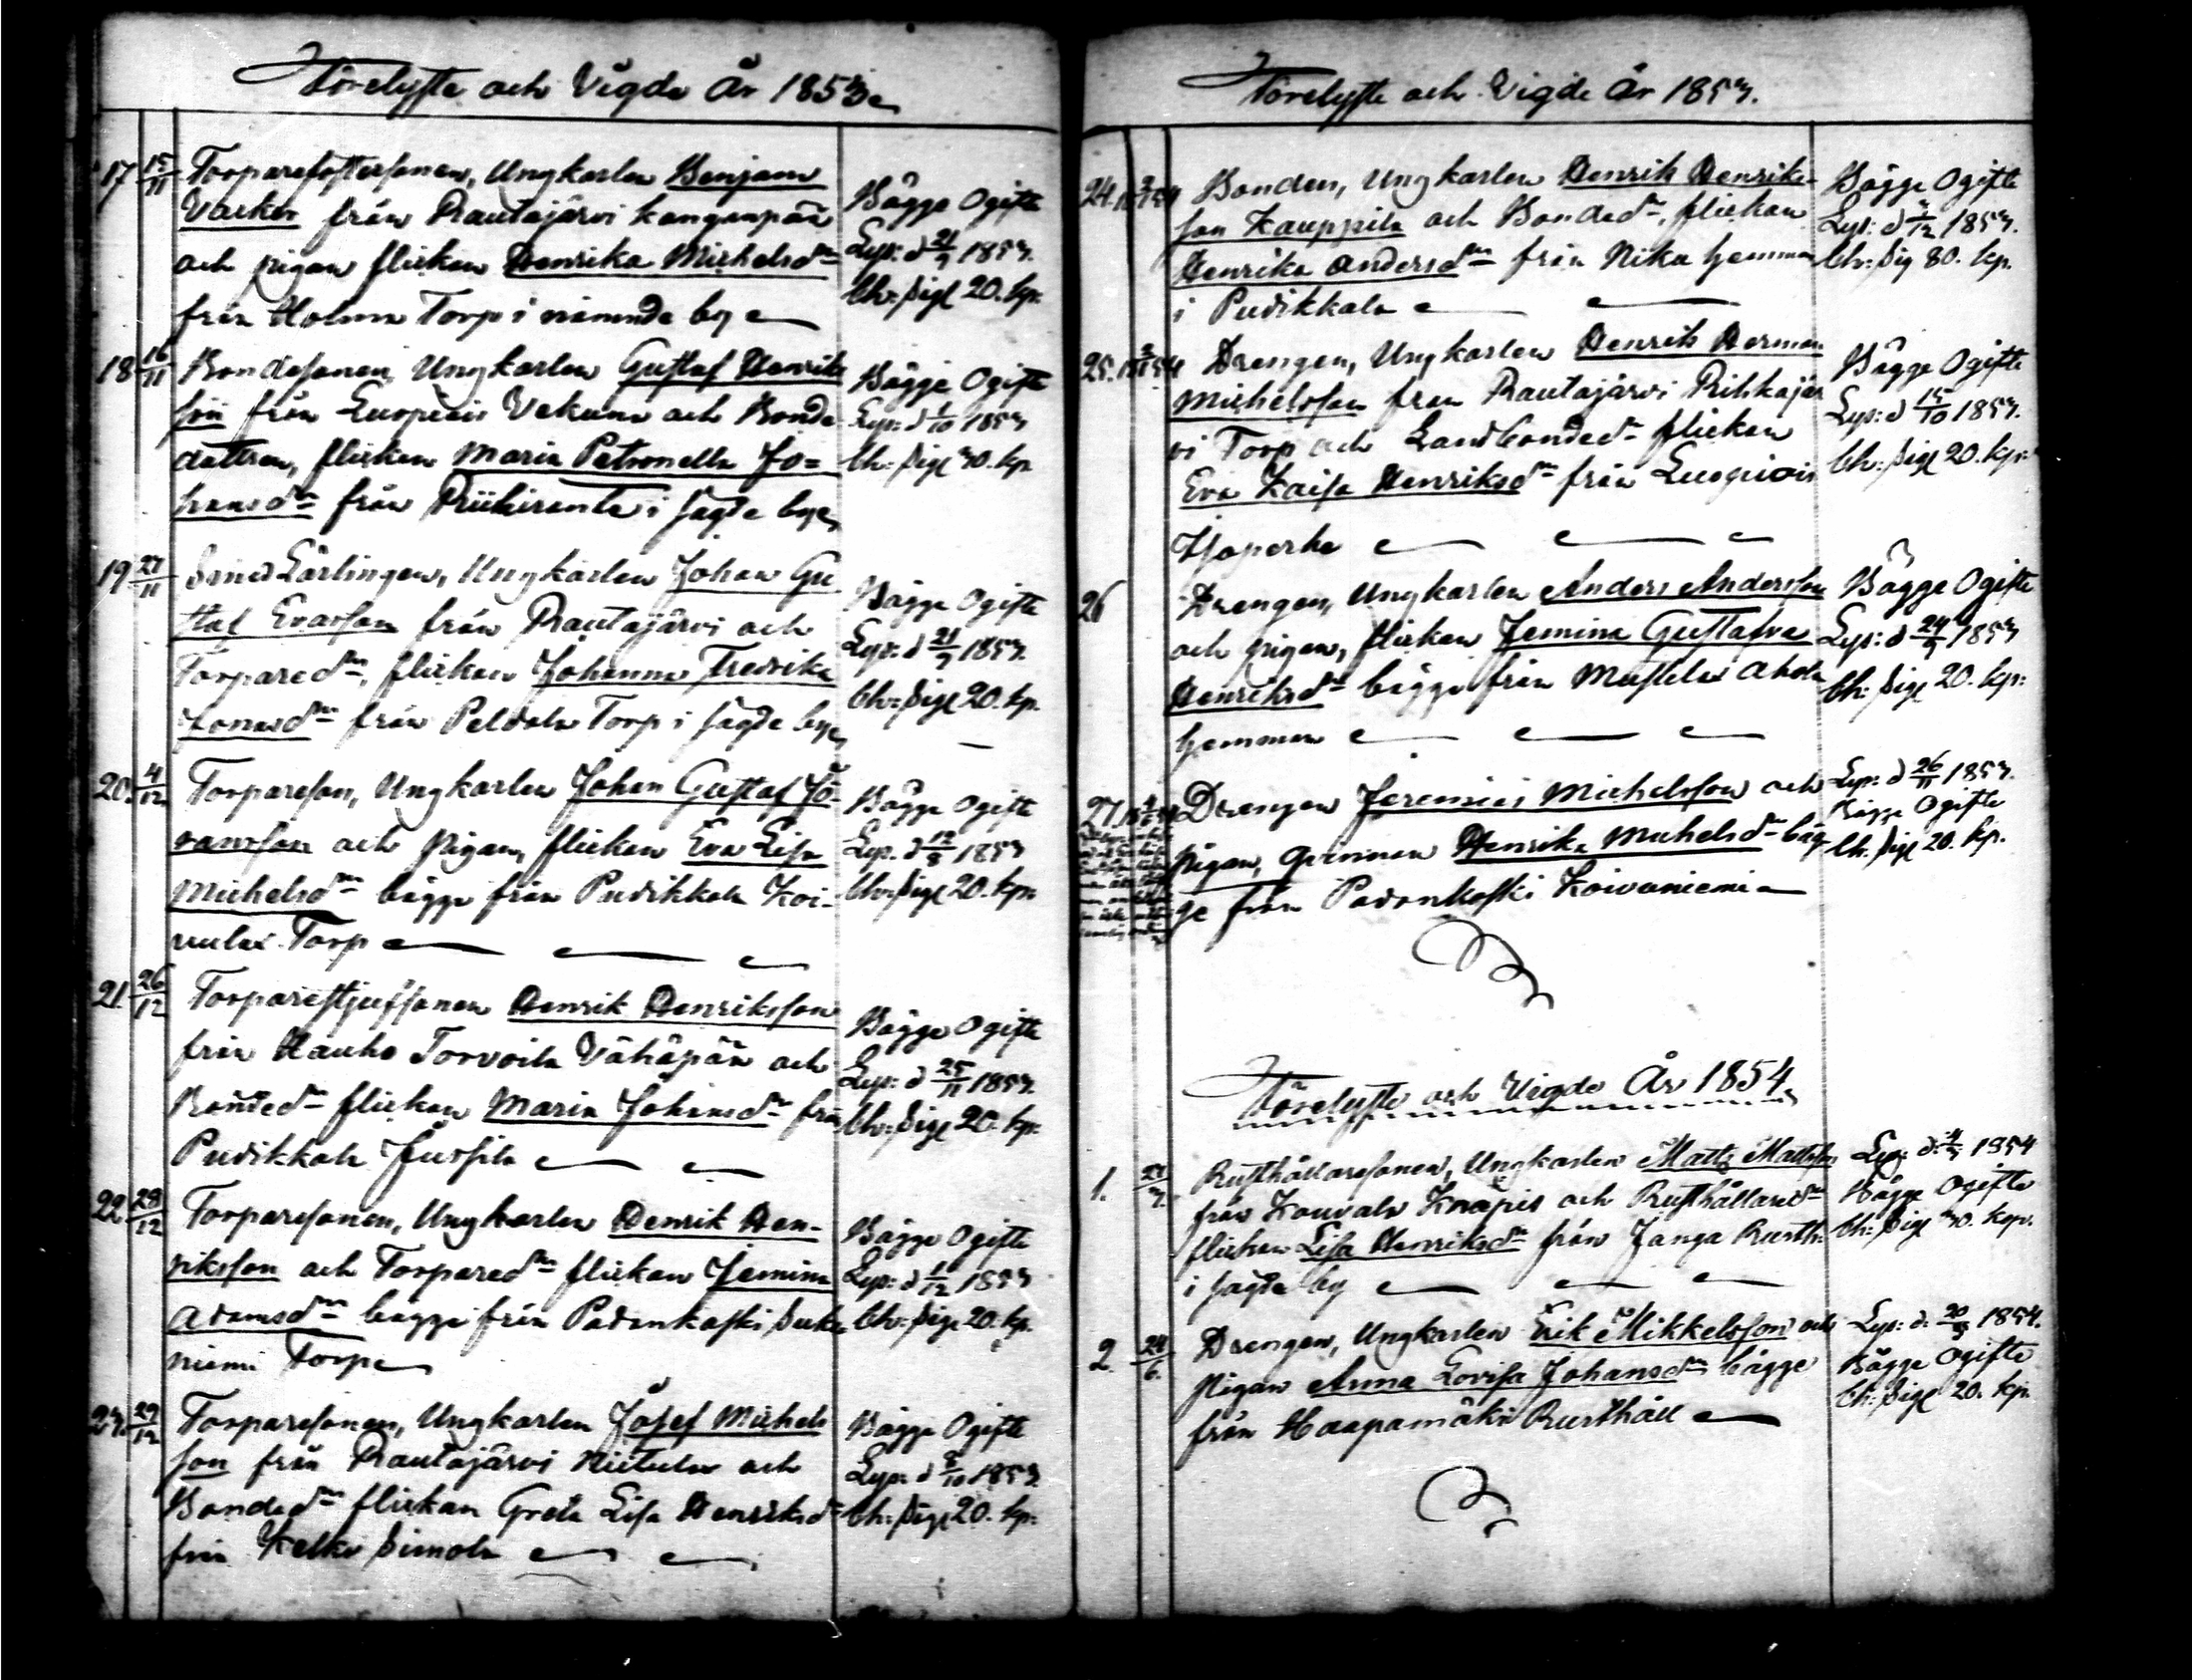 Förelyste och Vigde År 1853
17 15/11 Torparefostersonen, Ungkarlen Benjam
från Rautajärvi Kanganpää
och pigan flickan Henrika Michelsdr
från Holma Torp i nämnde by
Bägge Ogifte
Lys: d 21/9 1853.
Ch: Sigl 20. kp.
18 16/11 Bondesonen, Ungkarlen Gustaf Henriks
son från Luopiois Vakum och Bonde
dottren, flickan Maria Petronella Jo=
hansdr från i sagde by
Bägge Ogifte
Lys: d 1/10 1853
Ch: Sigl 30. kp
19 27/11 Ungkarlen Johan Gu
staf från Rautajärvi och
Torparedr, flickan Johanna Fredrika
Jonasdr från Peldola Torp i sagde by
Bägge Ogifte
Lys: d 21/9 1853.
Ch: Sigl 20. kp.
20. 4/12 Torpareson, Ungkarlen Johan Gustaf Jo-
hansson och Pigan, flickan Eva Lisa
Michelsdr bägge från Pudikkala Koi-
vula Torp
Bägge Ogifte
Lys. d 12/8 1853
Ch: Sigl 20. kp.
21. 26/12 Torparestjufsonen Henrik Henriksson
från Hauho Torvoila Vähäpää och
Bondedr flickan Maria Johansdr från
Pudikkala Jussila
Bägge Ogifte
Lys: d 25/11 1853.
Ch: Sigl 20. kp.
22 28/12 Torparesonen, Ungkarlen Henrik Hen-
riksson och Torparedr flickan Jemina
Adamsdr bägge från Padankoski
niemi Torp
Bägge Ogifte
Lys: d 1/12 1853
Ch: Sigl 20. kp.
23. 29/12 Torparesonen, Ungkarlen Josef Michels
son från Rautajärvi Nietula och
Bondedr flickan Greta Lisa Henriksdr
från Kelko Simola
Bägge Ogifte
Lys: d 8/10 1853.
Ch: Sigl 20. kp.
Förelyste och Vigde År 1853.
24. Bonden, Ungkarlen Henrik Henriks-
son Kauppila och Bondedr, flickan
Henrika Andersdr från Nika hemman
i Pudikkala
Bägge Ogifte
Lys: d 3/12 1853.
Ch: Sig 80. kp.
25. Drengen, Ungkarlen Henrik Herman
Michelsson från Rautajärvi Rihkajär
vi Torp och Landbondedr flickan
Eva Kaisa Henriksdr från Luopiois
Isoperhe
Bägge Ogifte
Lys: d 15/10 1853.
Ch: Sigl 20. kp.
26 Drengen, Ungkarlen Anders Andersson
och pigan, flickan Jemina Gustafva
Henriksdr bägge från Mustila Ahola
hemman
Bägge Ogifte
Lys: d 24/9 1853
Ch: Sigl 20. kp:
27. Drengen Jeremias Michelsson och
pigan, qvinnan Henrika Michelsdr bäg-
ge från Padankoski Koivuniemi
Lys: d 26/11 1853.
Bägge Ogifte
Ch. Sigl 20. kp.
Förelyste och Vigde År 1854.
1. Rusthållaresonen, Ungkarlen Matts Mattsson
från Kouvala Knaapis och Rusthållaredr
flickan Lisa Henriksdr från Janga Rusth:
i sagde by
Bägge Ogifte
Ch: Sigl 30. kp.
2. 24/6. Drengen, Ungkarlen Erik Mikkelsson och
Pigan Anna Lovisa Johansdr bägge
från Haapamäki Rusthåll
Lys: d. 20/3 1854.
Bägge Ogifte
Ch: Sigl 20. kp.